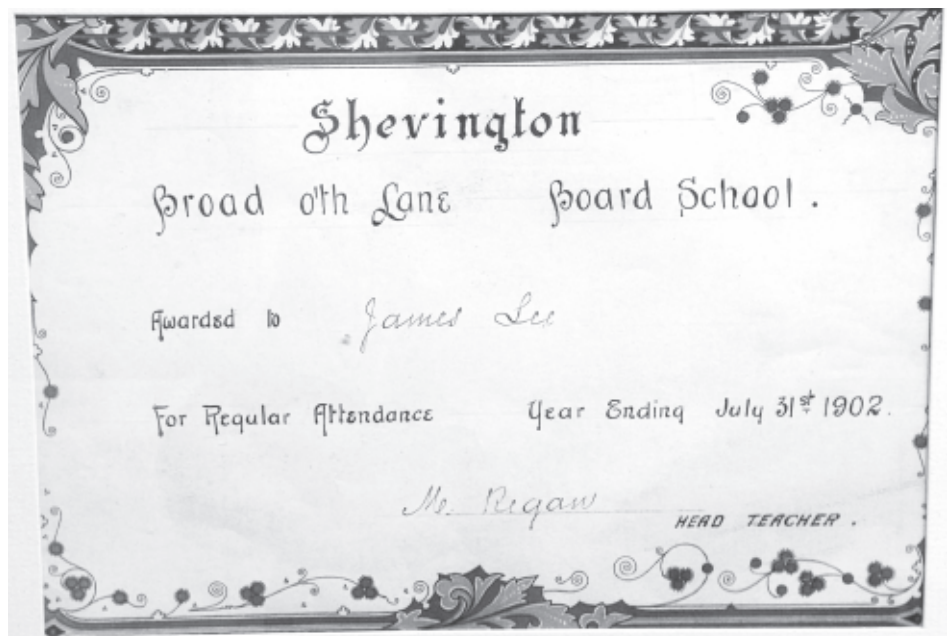 Shevington
Broad o'th Lane Board School.
Awarded to James Lee
For Regular Attendance Year Ending July 31st 1902.
HEAD TEACHER.